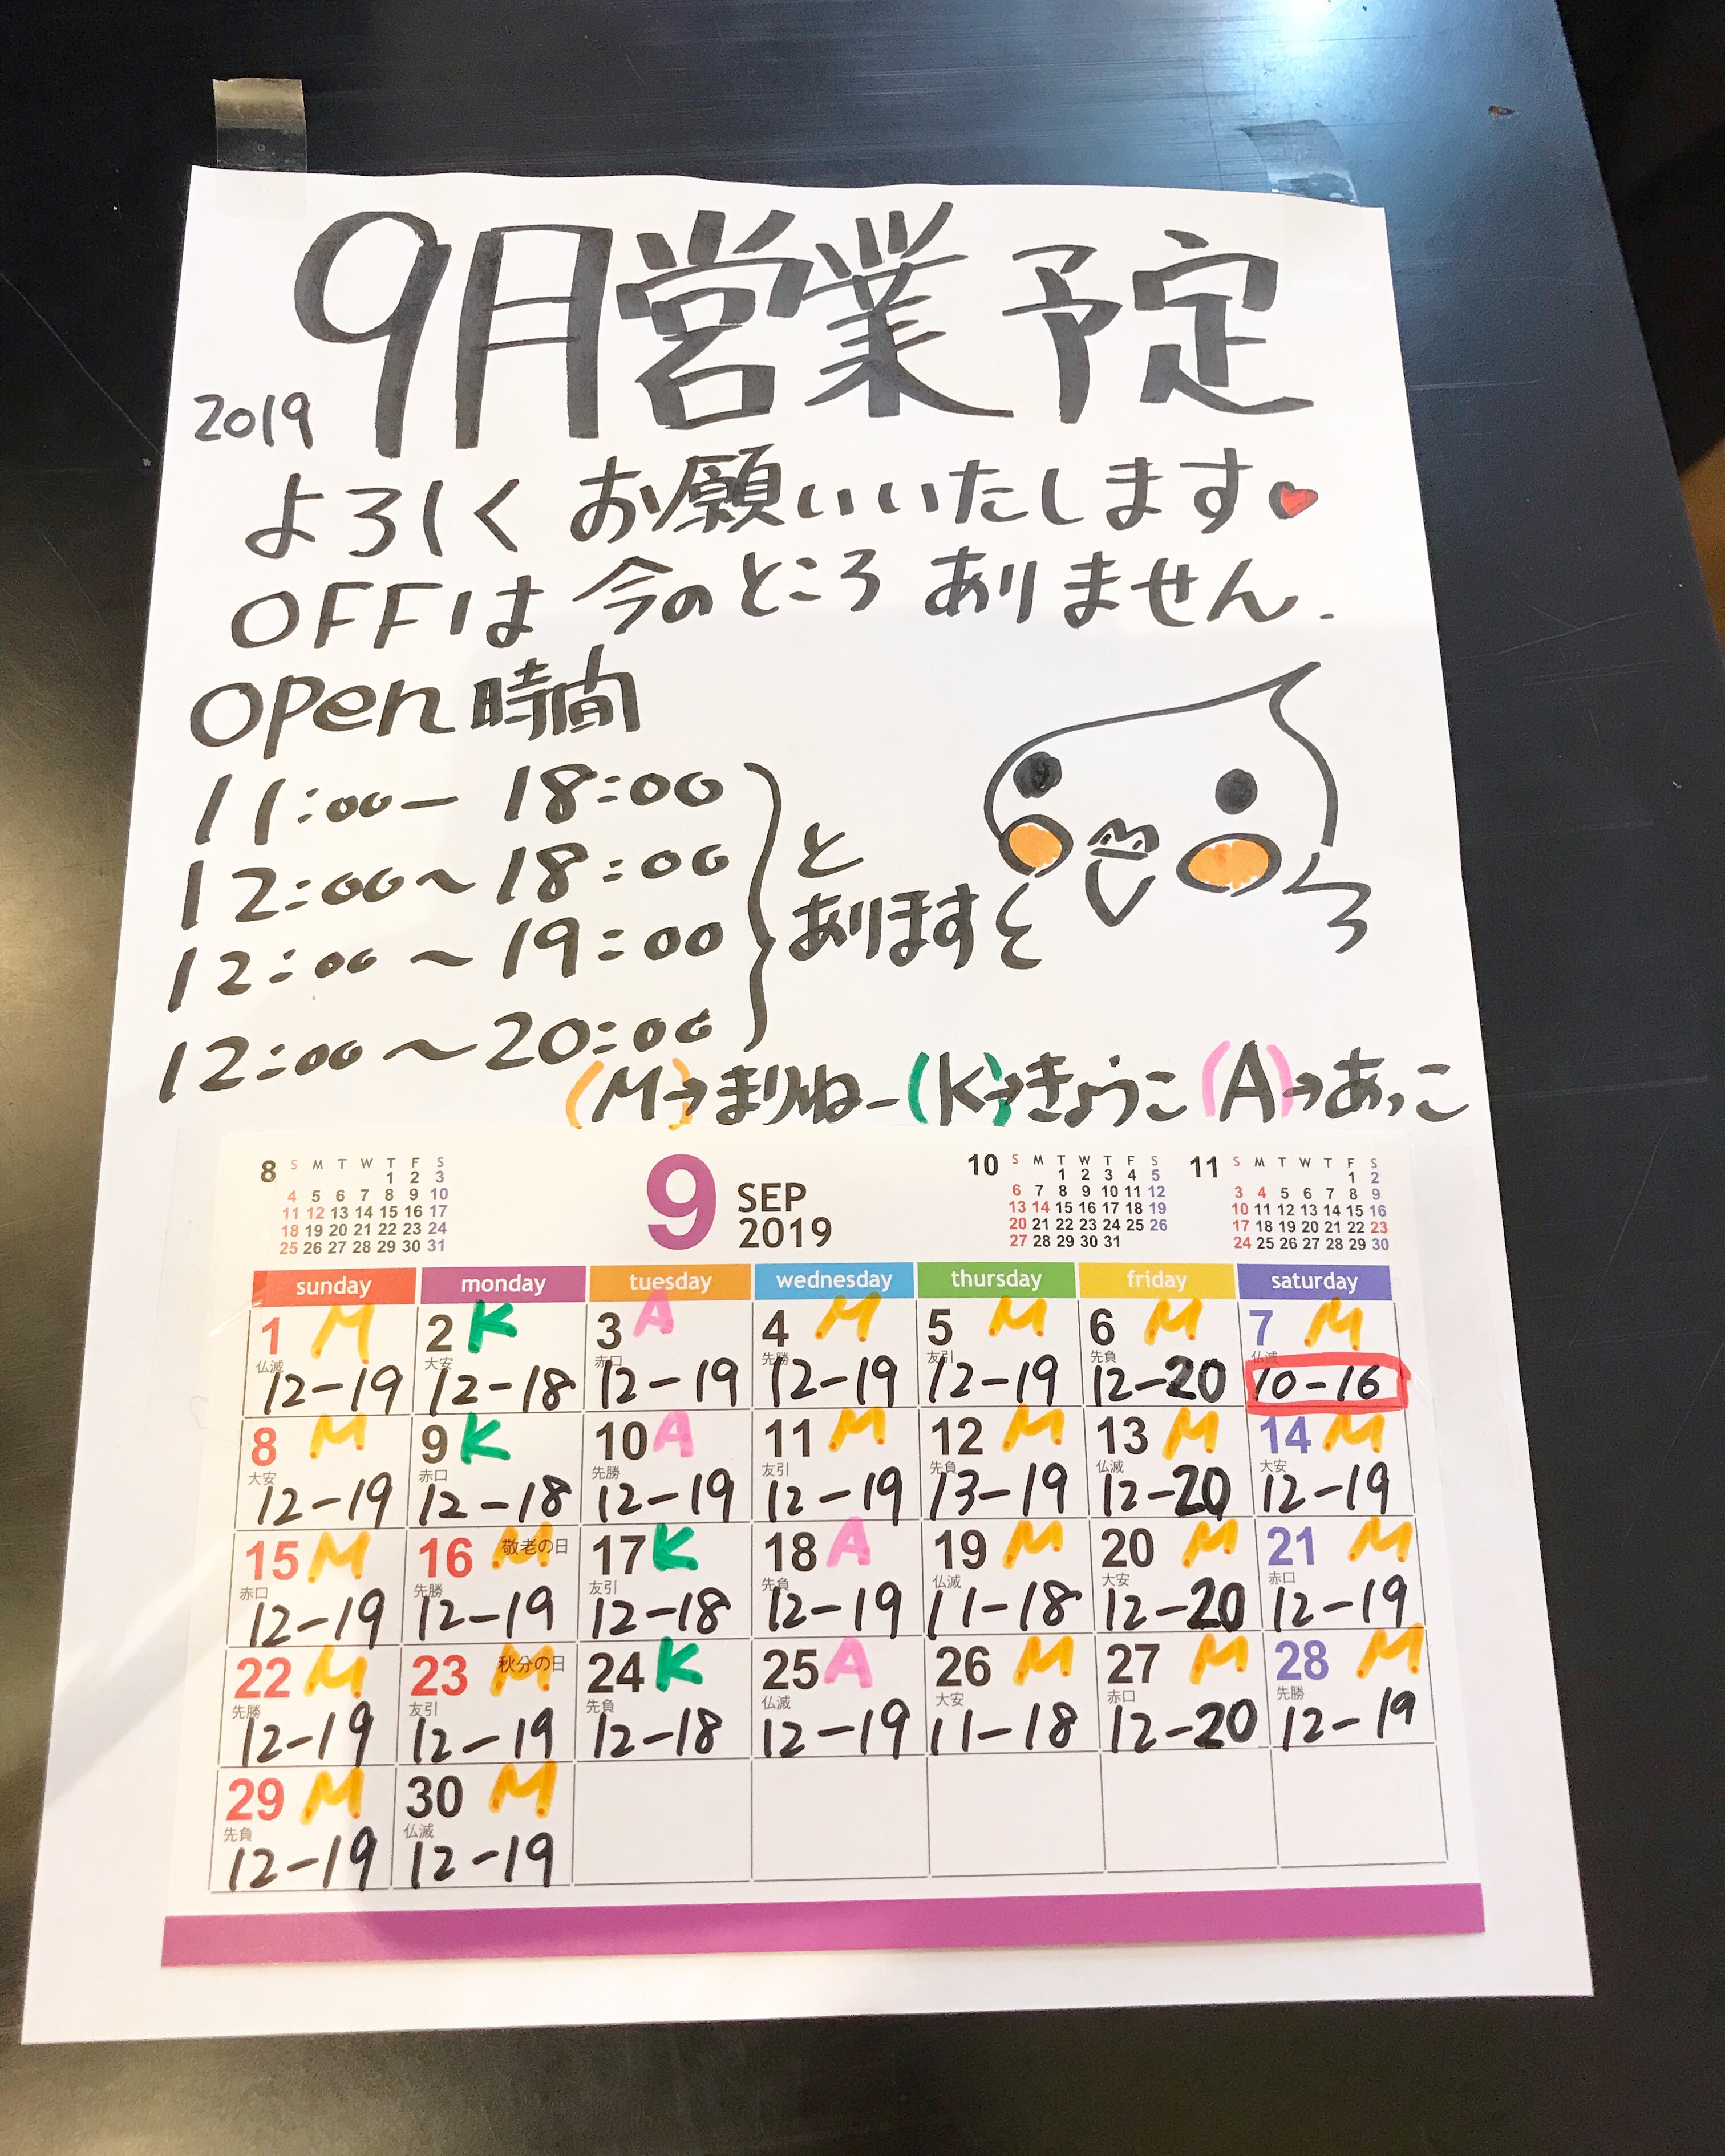 9月営業予定
2019
よろしくお願いいたします
OFFは今のところありません.
open時間
11:00— 18:00
12:00〜18:00
12:00〜19:00
12:00〜20:00
と
あります
(M)→まりねー(K)→きょうこ(A)→あっこ
8 S M T W T F S
1 2 3
4 5 6 7 8 9 10
11 12 13 14 15 16 17
18 19 20 21 22 23 24
25 26 27 28 29 30 31
9 SEP
2019
10 S M T W T F S
1 2 3 4 5
6 7 8 9 10 11 12
13 14 15 16 17 18 19
20 21 22 23 24 25 26
27 28 29 30 31
11 S M T W T F S
1 2
3 4 5 6 7 8 9
10 11 12 13 14 15 16
17 18 19 20 21 22 23
24 25 26 27 28 29 30
sunday monday tuesday wednesday thursday friday saturday
1 M 2 K 3 A 4 M 5 M 6 M 7 M
仏滅 大安 赤口 先勝 友引 先負 仏滅
12-19 12-18 12-19 12-19 12-19 12-20 10-16
8 M 9 K 10 A 11 M 12 M 13 M 14 M
大安 赤口 先勝 友引 先負 仏滅 大安
12-19 12-18 12-19 12-19 13-19 12-20 12-19
15 M 16 M 敬老の日 17 K 18 A 19 M 20 M 21 M
赤口 先勝 友引 先負 仏滅 大安 赤口
12-19 12-19 12-18 12-19 11-18 12-20 12-19
22 M 23 M 秋分の日 24 K 25 A 26 M 27 M 28 M
先勝 友引 先負 仏滅 大安 赤口 先勝
12-19 12-19 12-18 12-19 11-18 12-20 12-19
29 M 30 M
先負 仏滅
12-19 12-19